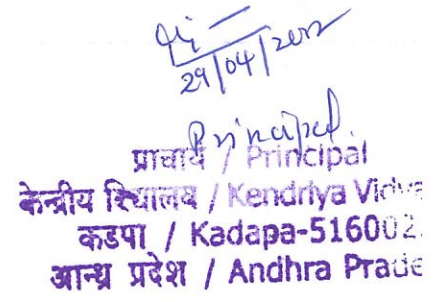 29/04/2022
Principal
प्राचार्य / Principal
केन्द्रीय विद्यालय / Kendriya Vidya
कडपा / Kadapa-516002
आन्ध्र प्रदेश / Andhra Prade